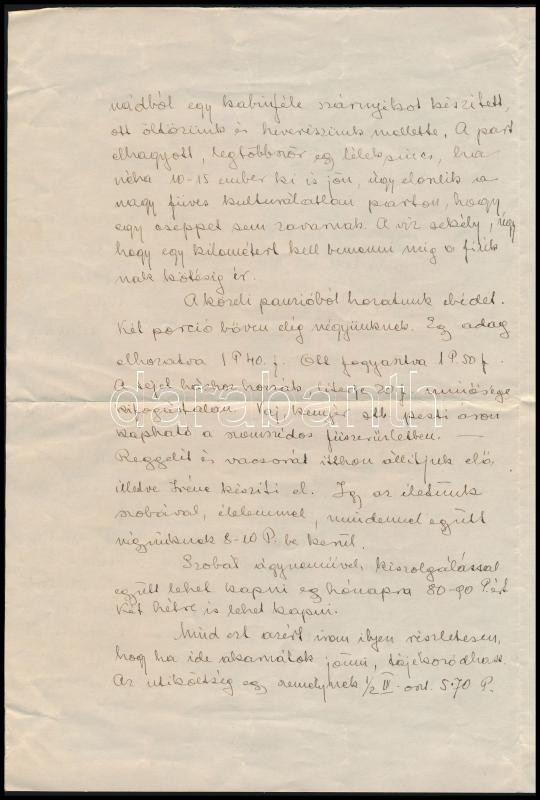 nádból egy kabinféle szárnyikot készített,
ott öltözünk és heverészünk mellette. A part
elhagyott, legtöbbször eg lélek sincs, ha
néha 10-15 ember ki is jön, úgy elomlik a
nagy füves kulturálatlan parton, hogy
egy cseppet sem zavarnak. A víz sekély, úgy
hogy egy kilométert kell bemenni míg a
nak kötésig ér.
A közeli panzióból hozatunk ebédet.
Két porció bőven elég négyünknek. Eg adag
elhozatva 1 P 40. f. Ott fogyasztva 1 P. 50 f.
A tejet házhoz hozzák literje 20 f. minősége
kifogástalan. Vaj kenyér stb. pesti áron
kapható a szomszédos füszerüzletben. —
Reggelit és vacsorát itthon állítjuk elő,
illetve Irénc készíti el. Ig az életünk
szobával, élelemmel, mindennel együtt
négyünknek 8-10 P. be kerül.
Szobát ágyneművel, kiszolgálással
együtt lehet kapni eg hónapra 80-90 P.ért
Két hétre is lehet kapni.
Mind ezt azért írom ilyen részletesen,
hog ha ide akarnátok jönni, tájékozódhass.
Az utiköltség eg személynek 1/2 III. oszt. 5.70 P.
darabanth